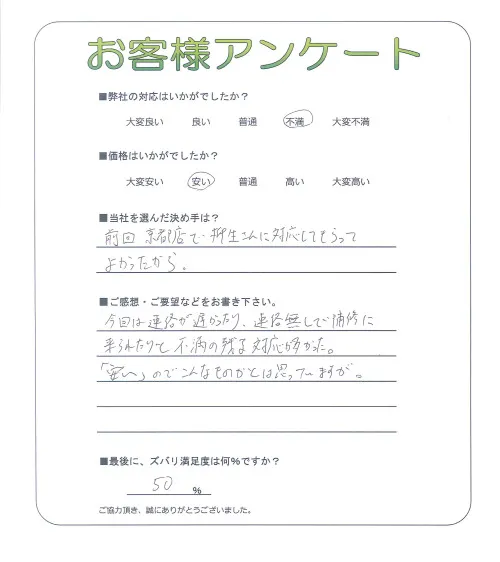 お客様アンケート
■弊社の対応はいかがでしたか？
大変良い 良い 普通 不満 大変不満
■価格はいかがでしたか？
大変安い 安い 普通 高い 大変高い
■当社を選んだ決め手は？
前回 京都店で柳生さんに対応してもらって
よかったから。
■ご感想・ご要望などをお書き下さい。
今回は連絡が遅かったり、連絡無しで補修に
来られたりと不満の残る対応が多かった。
「安い」のでこんなものかとは思っていますが。
■最後に、ズバリ満足度は何%ですか？
50 %
ご協力頂き、誠にありがとうございました。